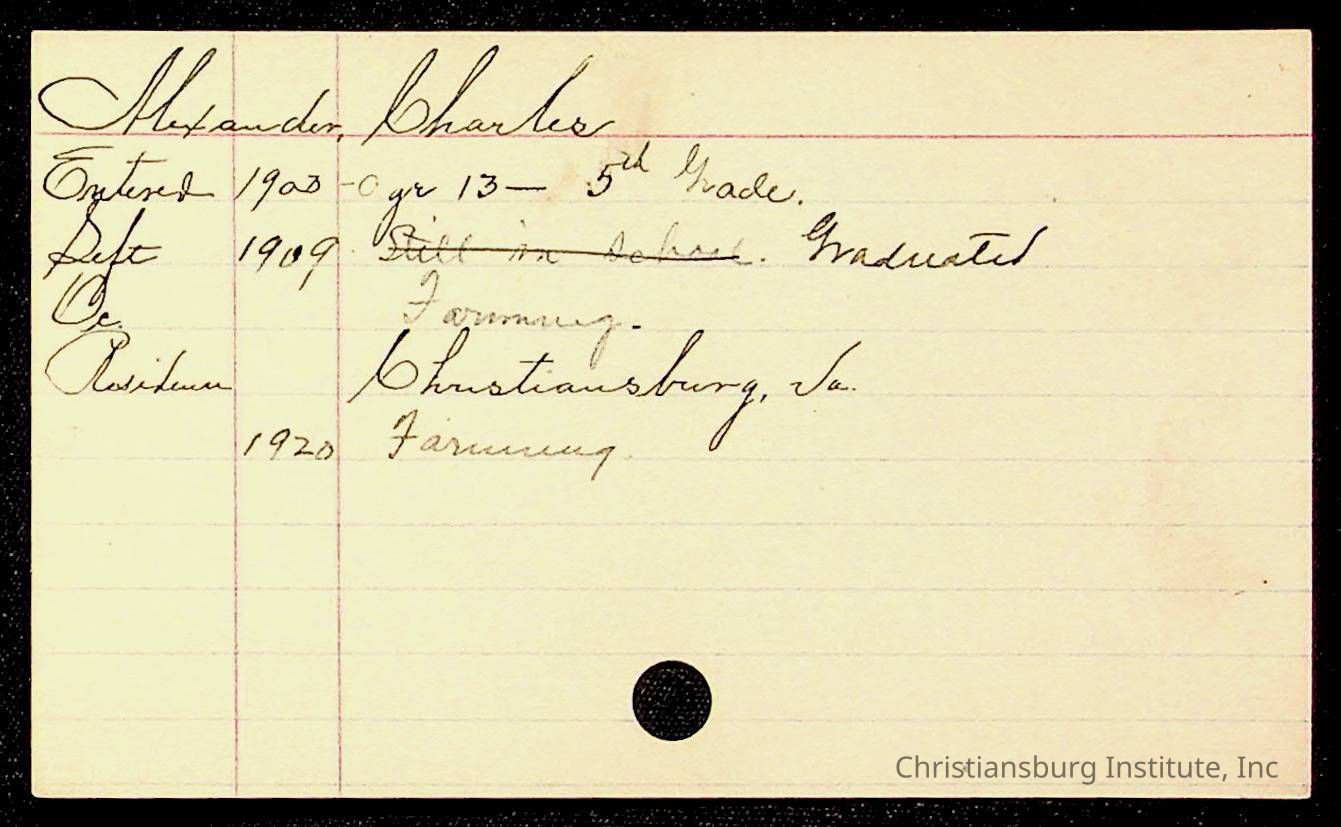 Alexander, Charles
Entered 1903 - Age 13 — 5th Grade.
Left 1909 Still in school. Graduated
Oc. Farming.
Residence Christiansburg, Va.
1920 Farming
Christiansburg Institute, Inc